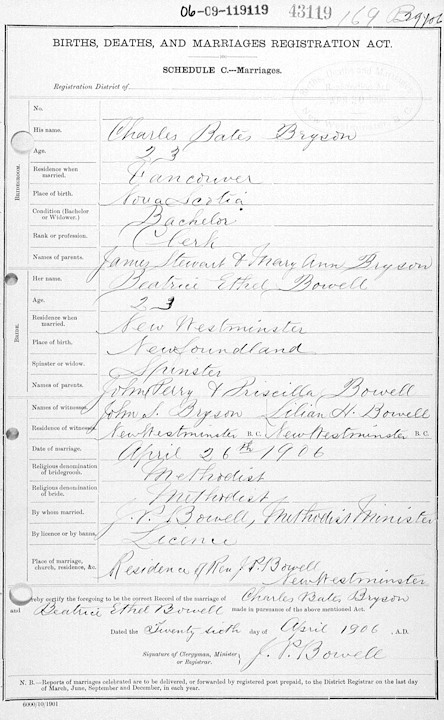 06-09-119119 43119 169
BIRTHS, DEATHS, AND MARRIAGES REGISTRATION ACT.
SCHEDULE C.—Marriages.
Registration District of
No.
BRIDEGROOM.
His name. Charles Bates Bryson
Age. 23
Residence when married. Vancouver
Place of birth. Nova Scotia
Condition (Bachelor or Widower.) Bachelor
Rank or profession. Clerk
Names of parents. James Stewart & Mary Ann Bryson
BRIDE.
Her name. Beatrice Ethel Bowell
Age. 23
Residence when married. New Westminster
Place of birth. Newfoundland
Spinster or widow. Spinster
Names of parents. John Perry & Priscilla Bowell
Names of witnesses. John S. Bryson Lilian H. Bowell
Residence of witnesses. New Westminster B.C. New Westminster B.C.
Date of marriage. April 26th 1906
Religious denomination of bridegroom. Methodist
Religious denomination of bride. Methodist
By whom married. J. P. Bowell, Methodist Minister
By licence or by banns. Licence
Place of marriage, church, residence, &c. Residence of Rev. J. P. Bowell
New Westminster
I hereby certify the foregoing to be the correct Record of the Marriage of Charles Bates Bryson
and Beatrice Ethel Bowell made in pursuance of the above mentioned Act.
Dated the Twenty sixth day of April 1906 , A.D.
Signature of Clergyman, Minister or Registrar. J. P. Bowell
N. B.—Reports of marriages celebrated are to be delivered, or forwarded by registered post prepaid, to the District Registrar on the last day
of March, June, September and December, in each year.
6000/10/1901